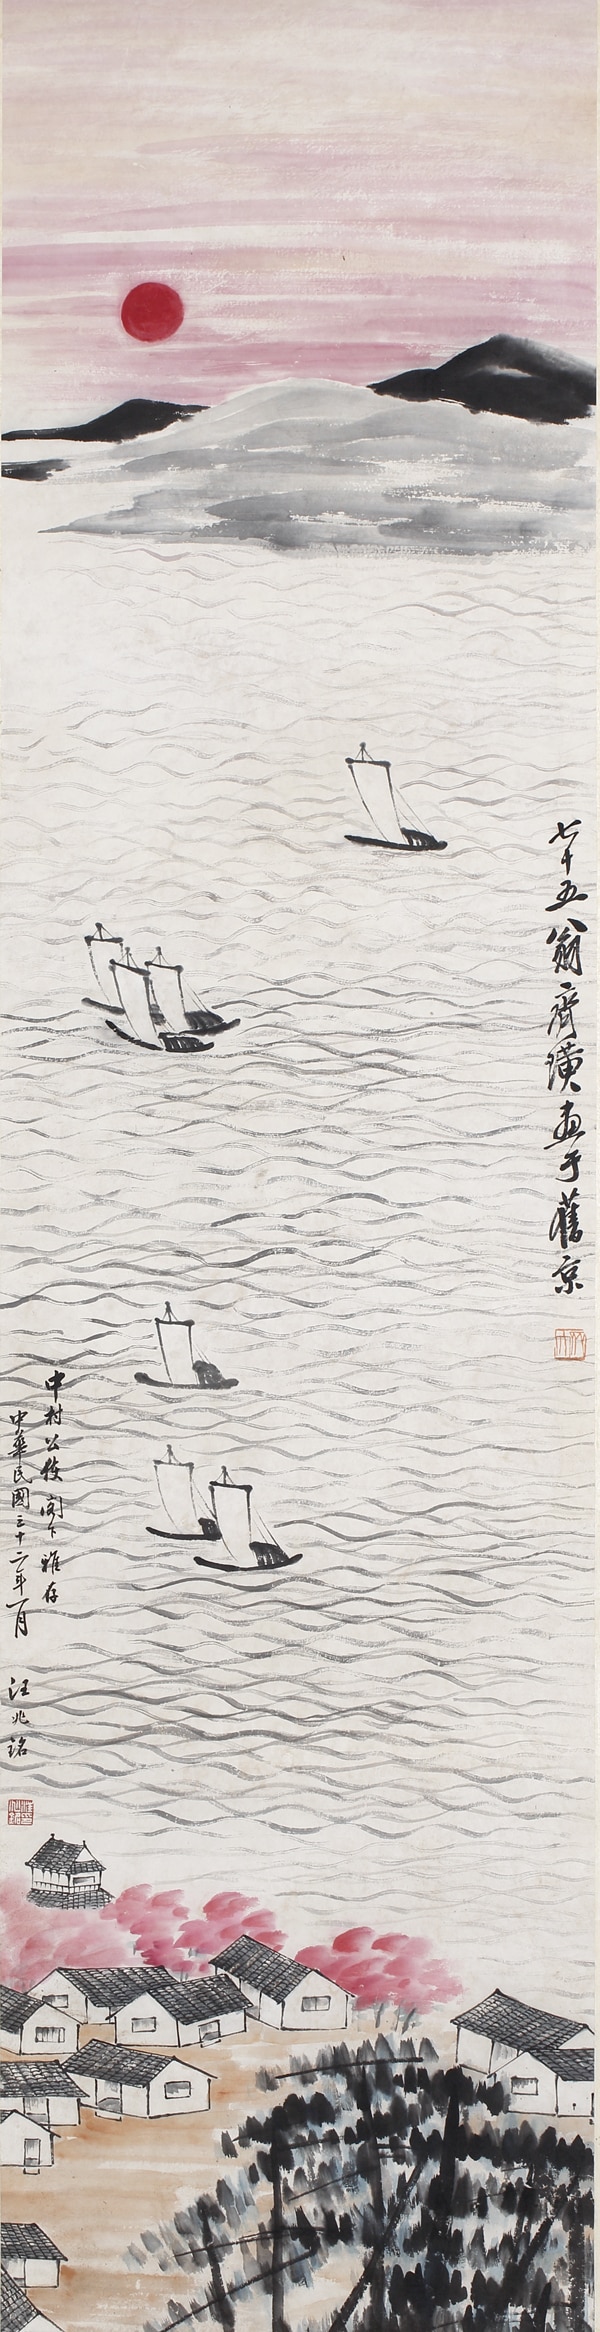 七十五八翁齊璜畫于舊京
中村公使閣下雅存
中華民國三十二年一月
汪兆銘